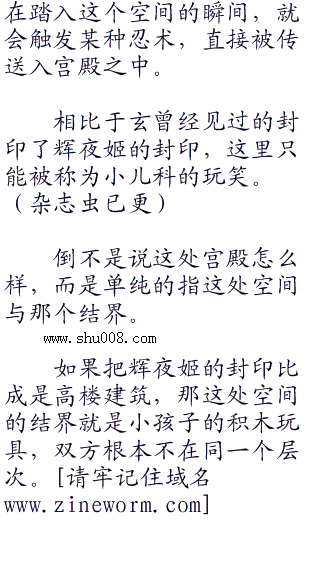 在踏入这个空间的瞬间，就
会触发某种忍术，直接被传
送入宫殿之中。
相比于玄曾经见过的封
印了辉夜姬的封印，这里只
能被称为小儿科的玩笑。
（杂志虫已更）
倒不是说这处宫殿怎么
样，而是单纯的指这处空间
与那个结界。
www.shu008.com
如果把辉夜姬的封印比
成是高楼建筑，那这处空间
的结界就是小孩子的积木玩
具，双方根本不在同一个层
次。[请牢记住域名
www.zineworm.com]